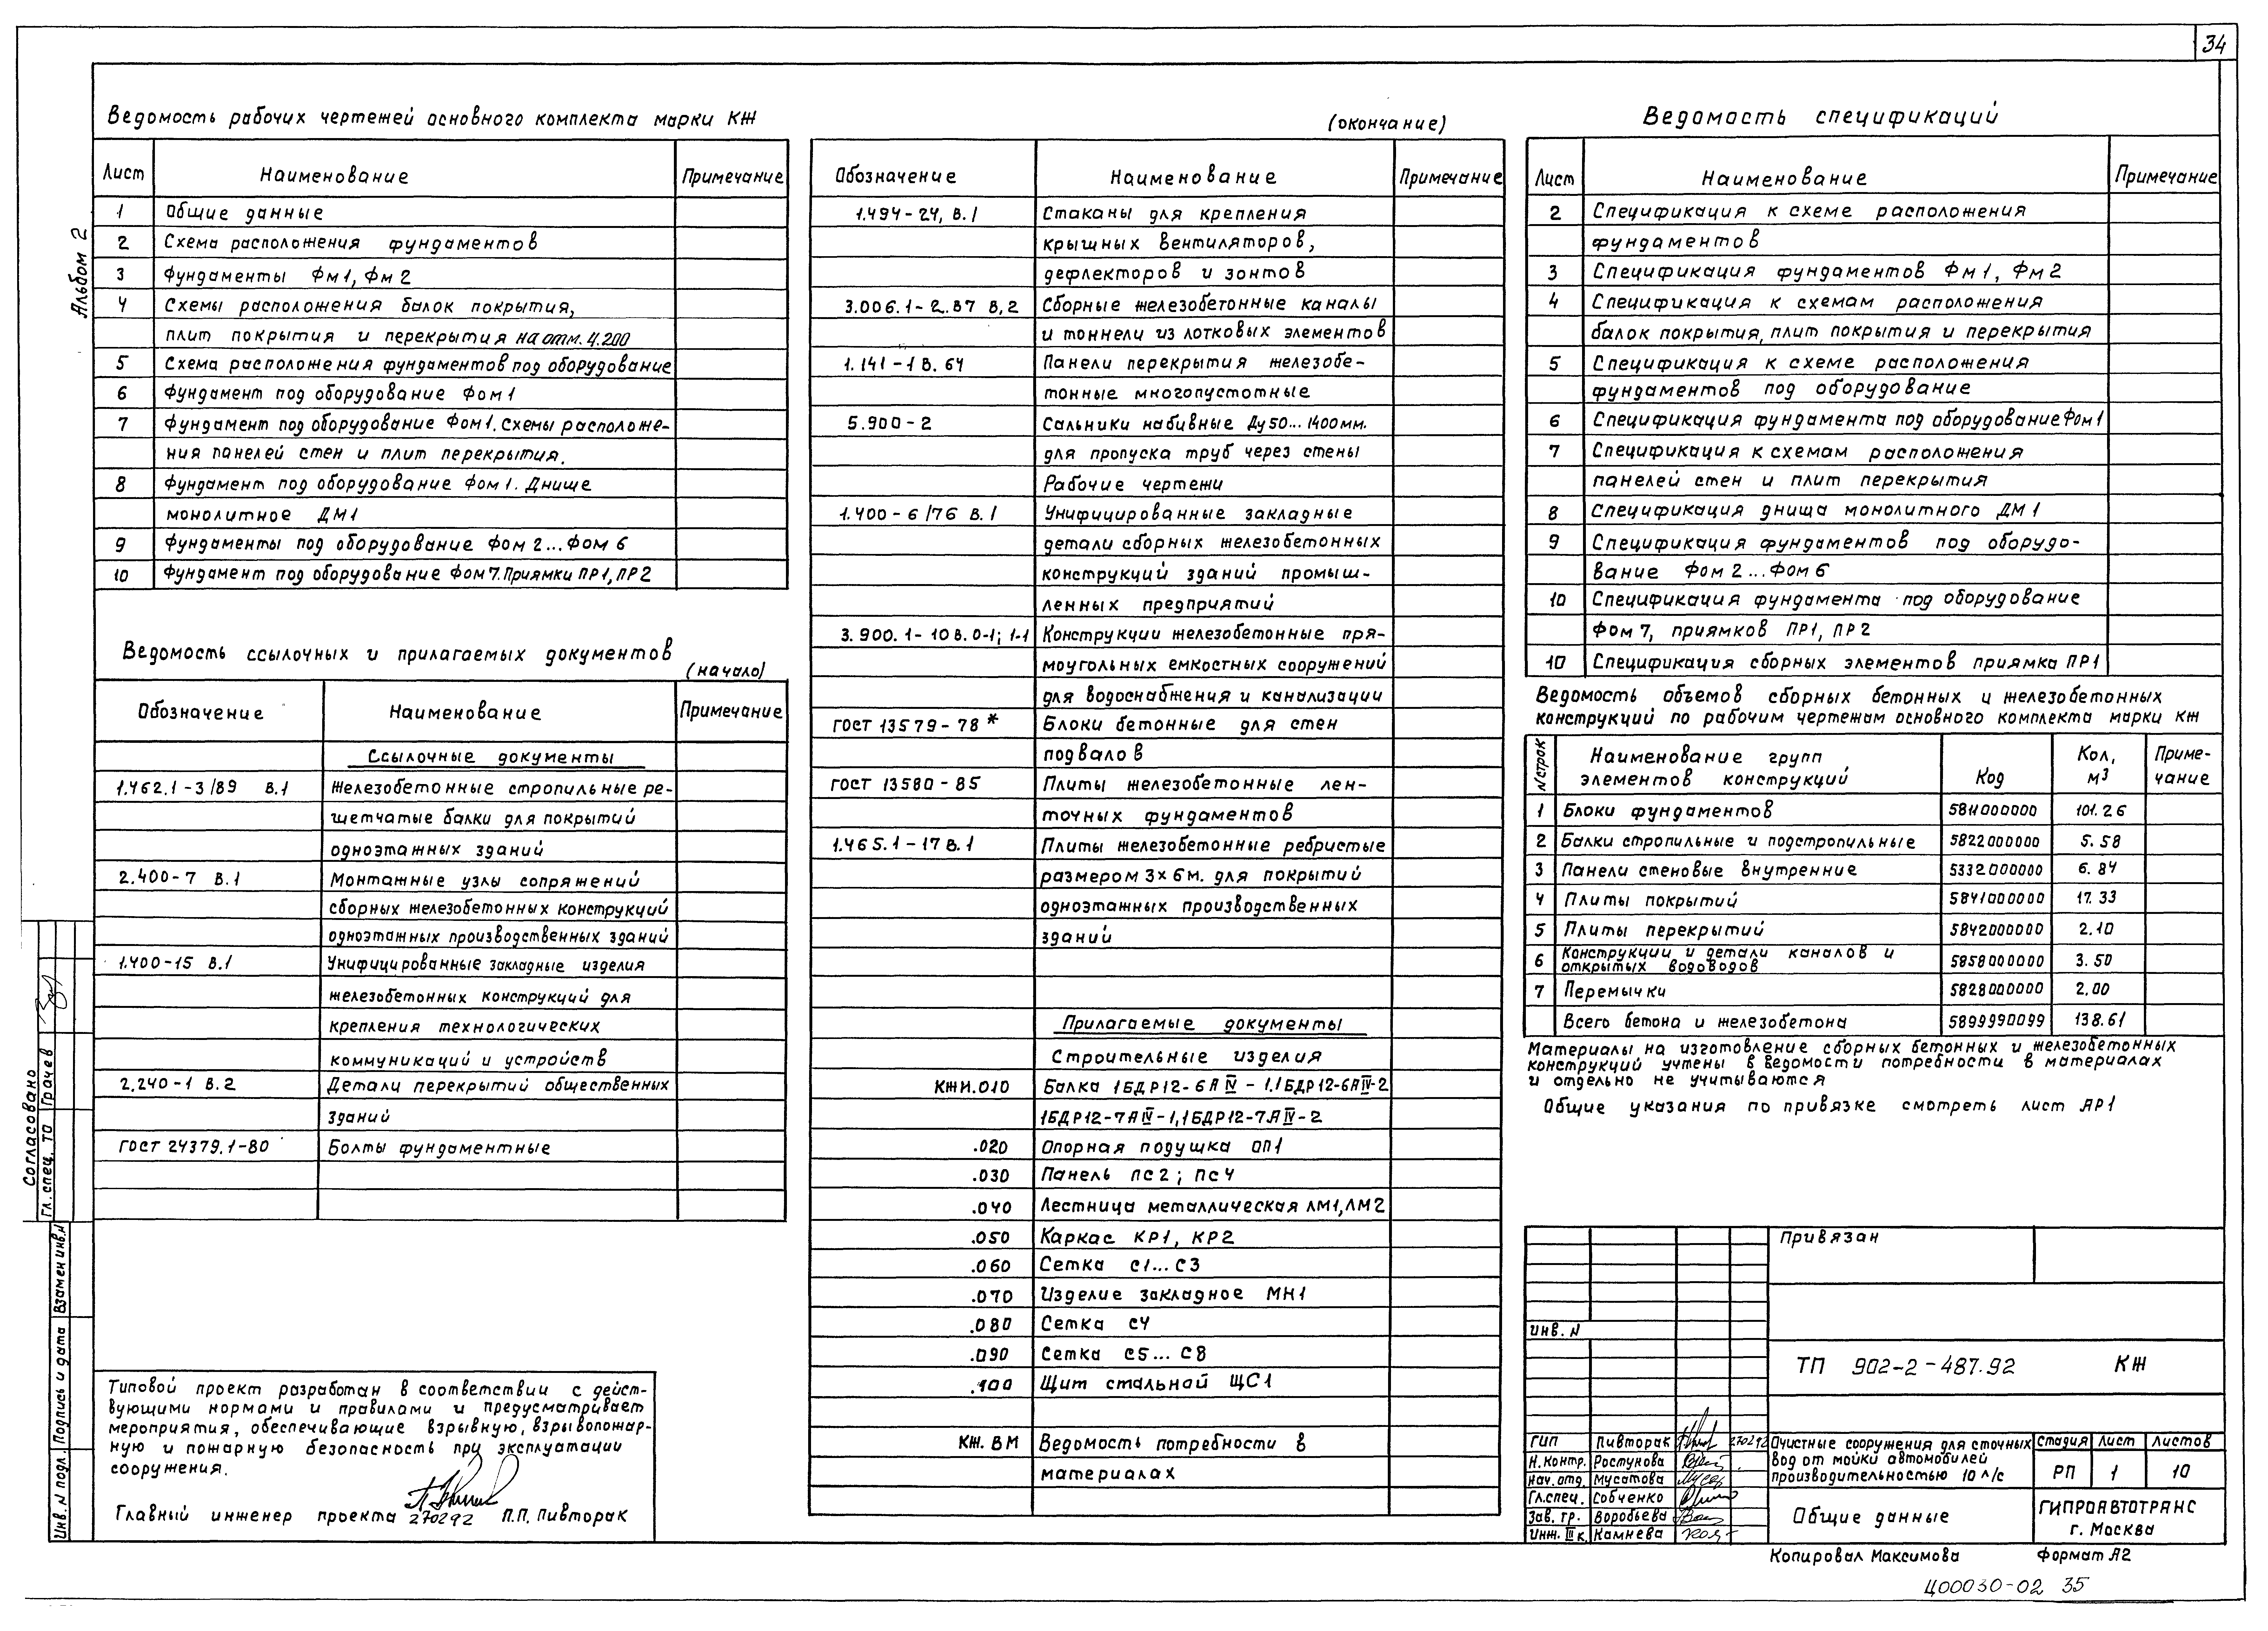 34
Альбом 2
Ведомость рабочих чертежей основного комплекта марки КЖ
Лист Наименование Примечание
1 Общие данные
2 Схема расположения фундаментов
3 Фундаменты Фм1, Фм2
4 Схемы расположения балок покрытия,
плит покрытия и перекрытия на отм. 4.200
5 Схема расположения фундаментов под оборудование
6 Фундамент под оборудование Фом1
7 Фундамент под оборудование Фом1. Схемы расположе-
ния панелей стен и плит перекрытия.
8 Фундамент под оборудование Фом1. Днище
монолитное ДМ1
9 Фундаменты под оборудование Фом2...Фом6
10 Фундамент под оборудование Фом7. Приямки ПР1, ПР2
Ведомость ссылочных и прилагаемых документов
(начало)
Обозначение Наименование Примечание
Ссылочные документы
1.462.1-3/89 В.1 Железобетонные стропильные ре-
шетчатые балки для покрытий
одноэтажных зданий
2.400-7 В.1 Монтажные узлы сопряжений
сборных железобетонных конструкций
одноэтажных производственных зданий
1.400-15 В.1 Унифицированные закладные изделия
железобетонных конструкций для
крепления технологических
коммуникаций и устройств
2.240-1 В.2 Детали перекрытий общественных
зданий
ГОСТ 24379.1-80 Болты фундаментные
Типовой проект разработан в соответствии с дейст-
вующими нормами и правилами и предусматривает
мероприятия, обеспечивающие взрывную, взрывопожар-
ную и пожарную безопасность при эксплуатации
сооружения.
Главный инженер проекта 270292 П.П. Пивторак
(окончание)
Обозначение Наименование Примечание
1.494-24, В.1 Стаканы для крепления
крышных вентиляторов,
дефлекторов и зонтов
3.006.1-2.87 В.2 Сборные железобетонные каналы
и тоннели из лотковых элементов
1.141-1 В.64 Панели перекрытия железобе-
тонные многопустотные
5.900-2 Сальники набивные Ду50...1400мм.
для пропуска труб через стены
Рабочие чертежи
1.400-6/76 В.1 Унифицированные закладные
детали сборных железобетонных
конструкций зданий промыш-
ленных предприятий
3.900.1-10 В.0-1; 1-1 Конструкции железобетонные пря-
моугольных емкостных сооружений
для водоснабжения и канализации
ГОСТ 13579-78* Блоки бетонные для стен
подвалов
ГОСТ 13580-85 Плиты железобетонные лен-
точных фундаментов
1.465.1-17 В.1 Плиты железобетонные ребристые
размером 3х6м. для покрытий
одноэтажных производственных
зданий
Прилагаемые документы
Строительные изделия
КЖИ.010 Балка 1БДР12-6АIV-1,1БДР12-6АIV-2
1БДР12-7АIV-1,1БДР12-7АIV-2
.020 Опорная подушка ОП1
.030 Панель ПС2; ПС4
.040 Лестница металлическая ЛМ1, ЛМ2
.050 Каркас КР1, КР2
.060 Сетка С1...С3
.070 Изделие закладное МН1
.080 Сетка С4
.090 Сетка С5...С8
.100 Щит стальной ЩС1
КЖ.ВМ Ведомость потребности в
материалах
Ведомость спецификаций
Лист Наименование Примечание
2 Спецификация к схеме расположения
фундаментов
3 Спецификация фундаментов Фм1, Фм2
4 Спецификация к схемам расположения
балок покрытия, плит покрытия и перекрытия
5 Спецификация к схеме расположения
фундаментов под оборудование
6 Спецификация фундамента под оборудование Фом1
7 Спецификация к схемам расположения
панелей стен и плит перекрытия
8 Спецификация днища монолитного ДМ1
9 Спецификация фундаментов под оборудо-
вание Фом2...Фом6
10 Спецификация фундамента под оборудование
Фом7, приямков ПР1, ПР2
10 Спецификация сборных элементов приямка ПР1
Ведомость объемов сборных бетонных и железобетонных
конструкций по рабочим чертежам основного комплекта марки КЖ
N строк Наименование групп элементов конструкций Код Кол, м3 Приме-чание
1 Блоки фундаментов 5811000000 101.26
2 Балки стропильные и подстропильные 5822000000 5.58
3 Панели стеновые внутренние 5332000000 6.84
4 Плиты покрытий 5841000000 17.33
5 Плиты перекрытий 5842000000 2.10
6 Конструкции и детали каналов и
открытых водоводов 5858000000 3.50
7 Перемычки 5828000000 2.00
Всего бетона и железобетона 5899990099 138.61
Материалы на изготовление сборных бетонных и железобетонных
конструкций учтены в ведомости потребности в материалах
и отдельно не учитываются
Общие указания по привязке смотреть лист АР1
Привязан
Инв. N
ТП 902-2-487.92 КЖ
ГИП Пивторак 270292
Н.контр. Ростунова
Нач. отд. Мусатова
Гл.спец. Собченко
Зав. гр. Воробьева
Инж. III к. Камнева
Очистные сооружения для сточных
вод от мойки автомобилей
производительностью 10 л/с
Стадия Лист Листов
РП 1 10
Общие данные
ГИПРОАВТОТРАНС
г. Москва
Копировал Максимова Формат А2
Ц00030-02 35
Согласовано
Гл. спец. ТО Грачев
Инв. N подл. Подпись и дата Взамен инв.N